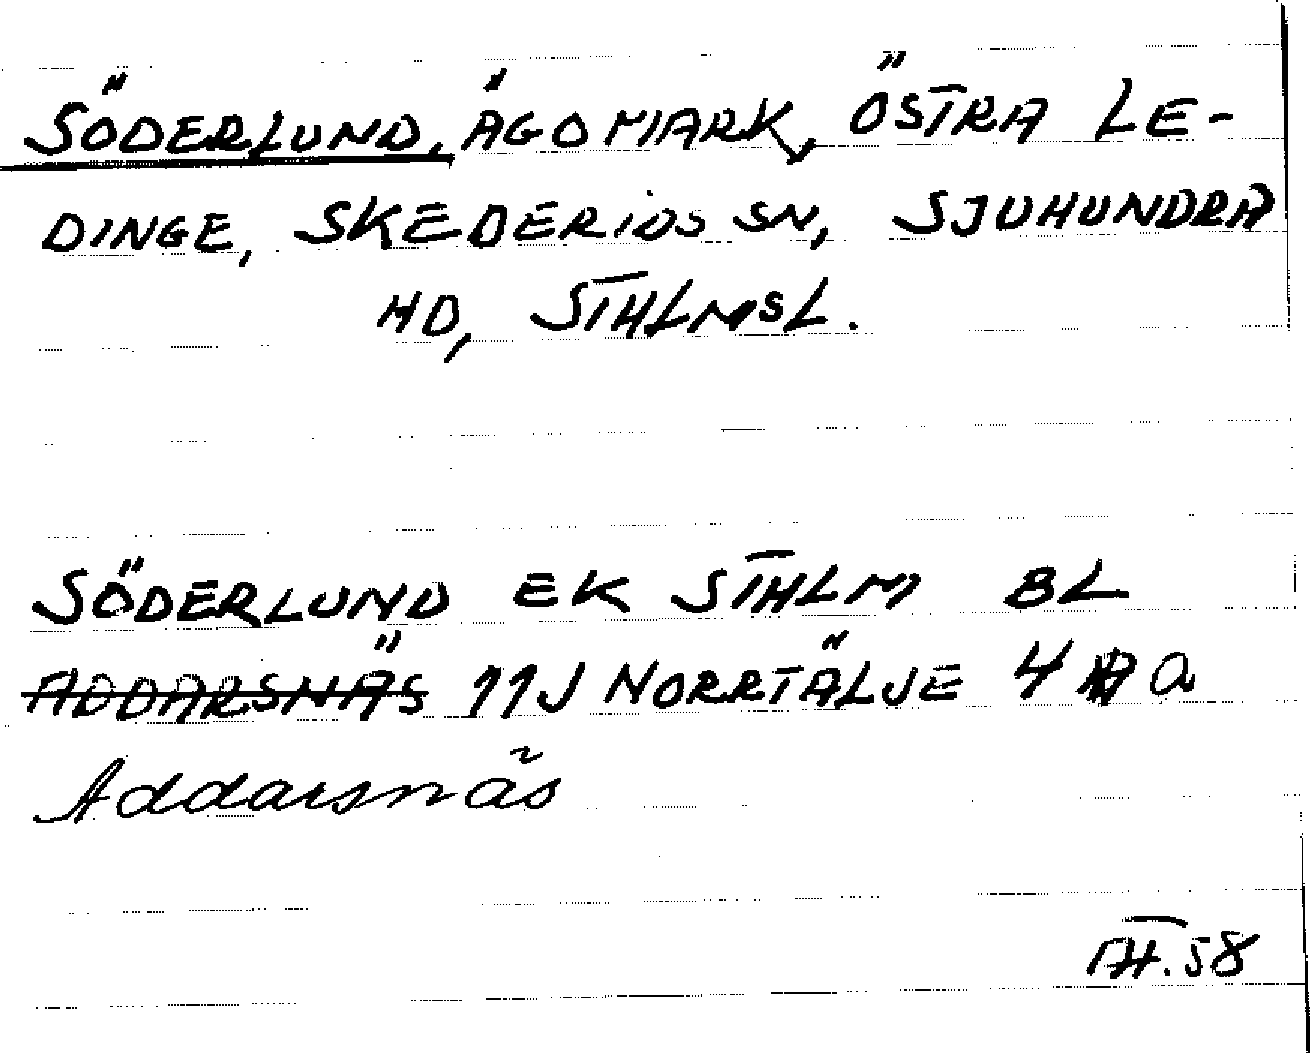 SÖDERLUND, ÄGOMARK, ÖSTRA LE-
DINGE, SKEDERIDS SN, SJUHUNDRA
HD, STHLMSL.
SÖDERLUND EK STHLM BL
ADDARSNÄS 11J NORRTÄLJE 4 a
Addarsnäs
TH.58